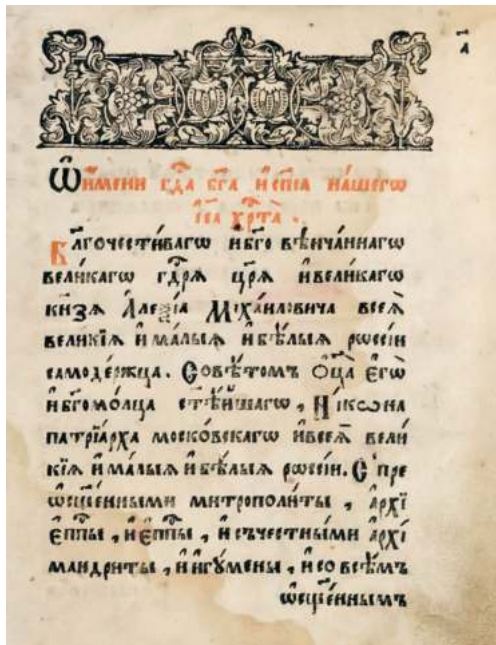 а҃
Ѡ҆ и҆́мени гдⷭ҇а бг҃а и҆ сп҃са на́шегѡ
і҆и҃са хрⷭ҇та̀ .
Бл҃гочести́вагѡ и҆ бг҃о вѣнча́ннагѡ
вели́кагѡ гдⷭ҇рѧ цр҃ѧ и҆ вели́кагѡ
кн҃ѕѧ А҆леѯі́а Мїха́иловича всеѧ̀
вели́кїѧ и҆ ма́лыѧ и҆ бѣ́лыѧ рѡсси́и
самоде́ржца . Совѣ́томъ ѻ҆ц҃а̀ є҆гѡ̀
и҆ бг҃омо́лца ст҃ѣ́йшагѡ , Ни́кѡна
патрїа́рха моско́вскагѡ и҆ всеѧ̀ вели́
кїѧ и҆ ма́лыѧ и҆ бѣ́лыѧ рѡсси́и . С̾ пре
ѡ҆сщ҃е́нными митрополи́ты , а҆рхї
є҆п҃пы , и҆ є҆п҃пы , и҆ съчестны́ми а҆рхї
мандри́ты , и҆ и҆гꙋ́мены , и҆ со всѣ́мъ
ѡ҆сщ҃е́ннымъ